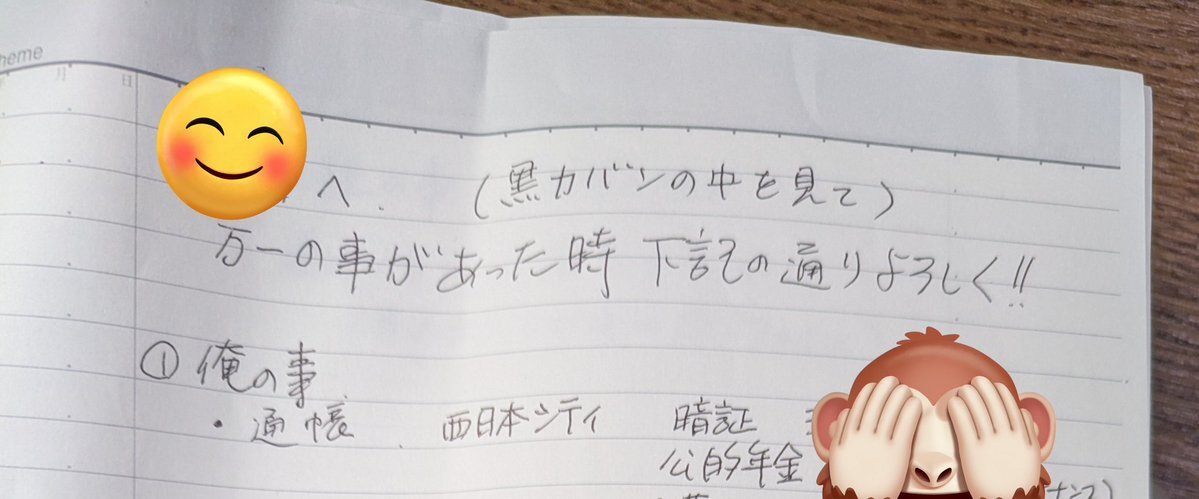 heme
月 日
へ. (黒カバンの中を見て)
万一の事があった時 下記の通りよろしく!!
① 俺の事
・通帳 西日本シティ 暗証
公的年金